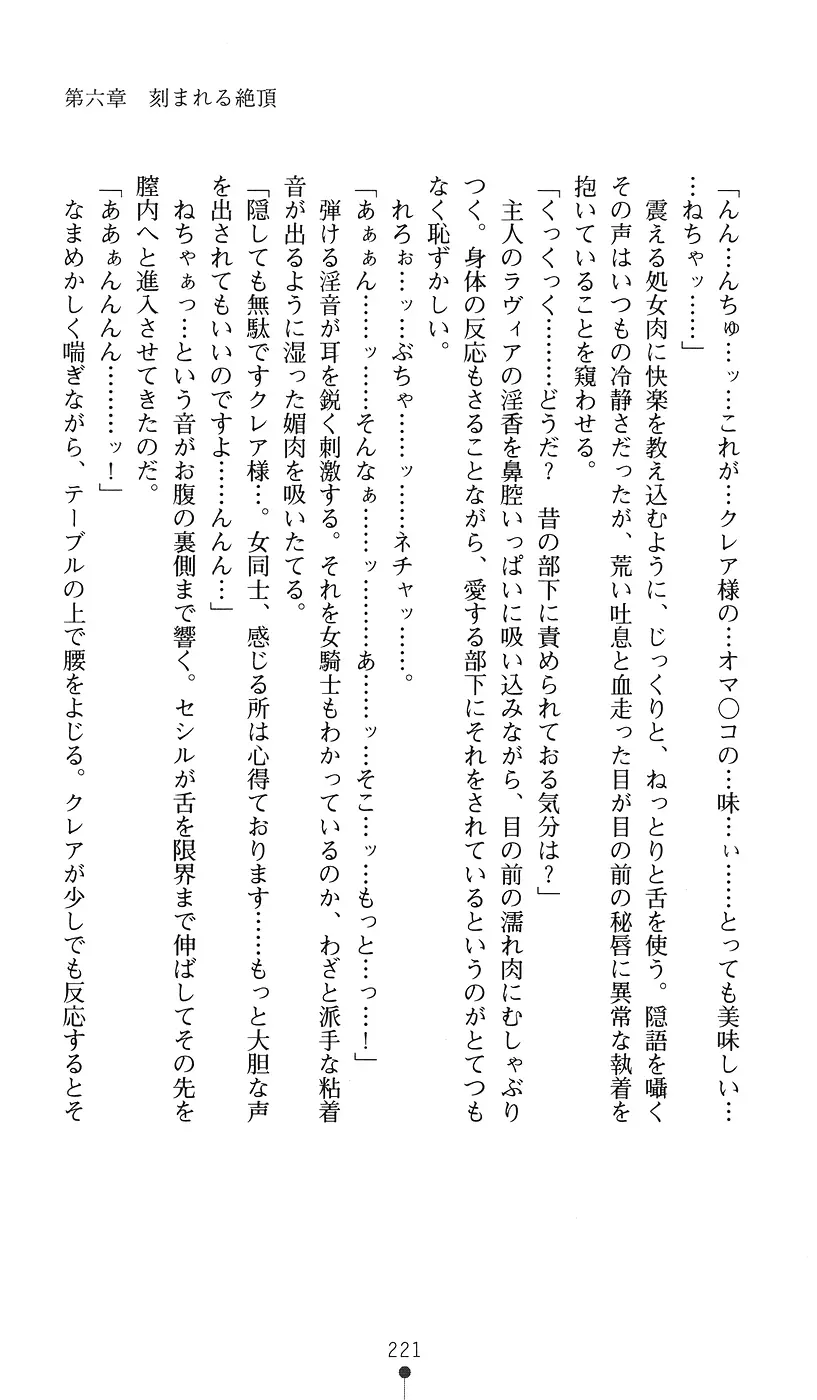 第六章　刻まれる絶頂
「んん…んちゅ…ッ…これが…クレア様の…オマ〇コの…味…ぃ……とっても美味しい…
…ねちゃッ……」
　震える処女肉に快楽を教え込むように、じっくりと、ねっとりと舌を使う。隠語を囁く
その声はいつもの冷静さだったが、荒い吐息と血走った目が目の前の秘唇に異常な執着を
抱いていることを窺わせる。
「くっくっく………どうだ？　昔の部下に責められておる気分は？」
　主人のラヴィアの淫香を鼻腔いっぱいに吸い込みながら、目の前の濡れ肉にむしゃぶり
つく。身体の反応もさることながら、愛する部下にそれをされているというのがとてつも
なく恥ずかしい。
　れろぉ…ッ…ぶちゃ……ッ……ネチャッ……。
「あぁぁん……ッ……そんなぁ……ッ………あ……ッ…そこ…ッ…もっと…っ…！」
　弾ける淫音が耳を鋭く刺激する。それを女騎士もわかっているのか、わざと派手な粘着
音が出るように湿った媚肉を吸いたてる。
「隠しても無駄ですクレア様…。女同士、感じる所は心得ております……もっと大胆な声
を出されてもいいのですよ……んんん…」
　ねちゃぁっ…という音がお腹の裏側まで響く。セシルが舌を限界まで伸ばしてその先を
膣内へと進入させてきたのだ。
「ああぁんんんん………ッ！」
　なまめかしく喘ぎながら、テーブルの上で腰をよじる。クレアが少しでも反応するとそ
221